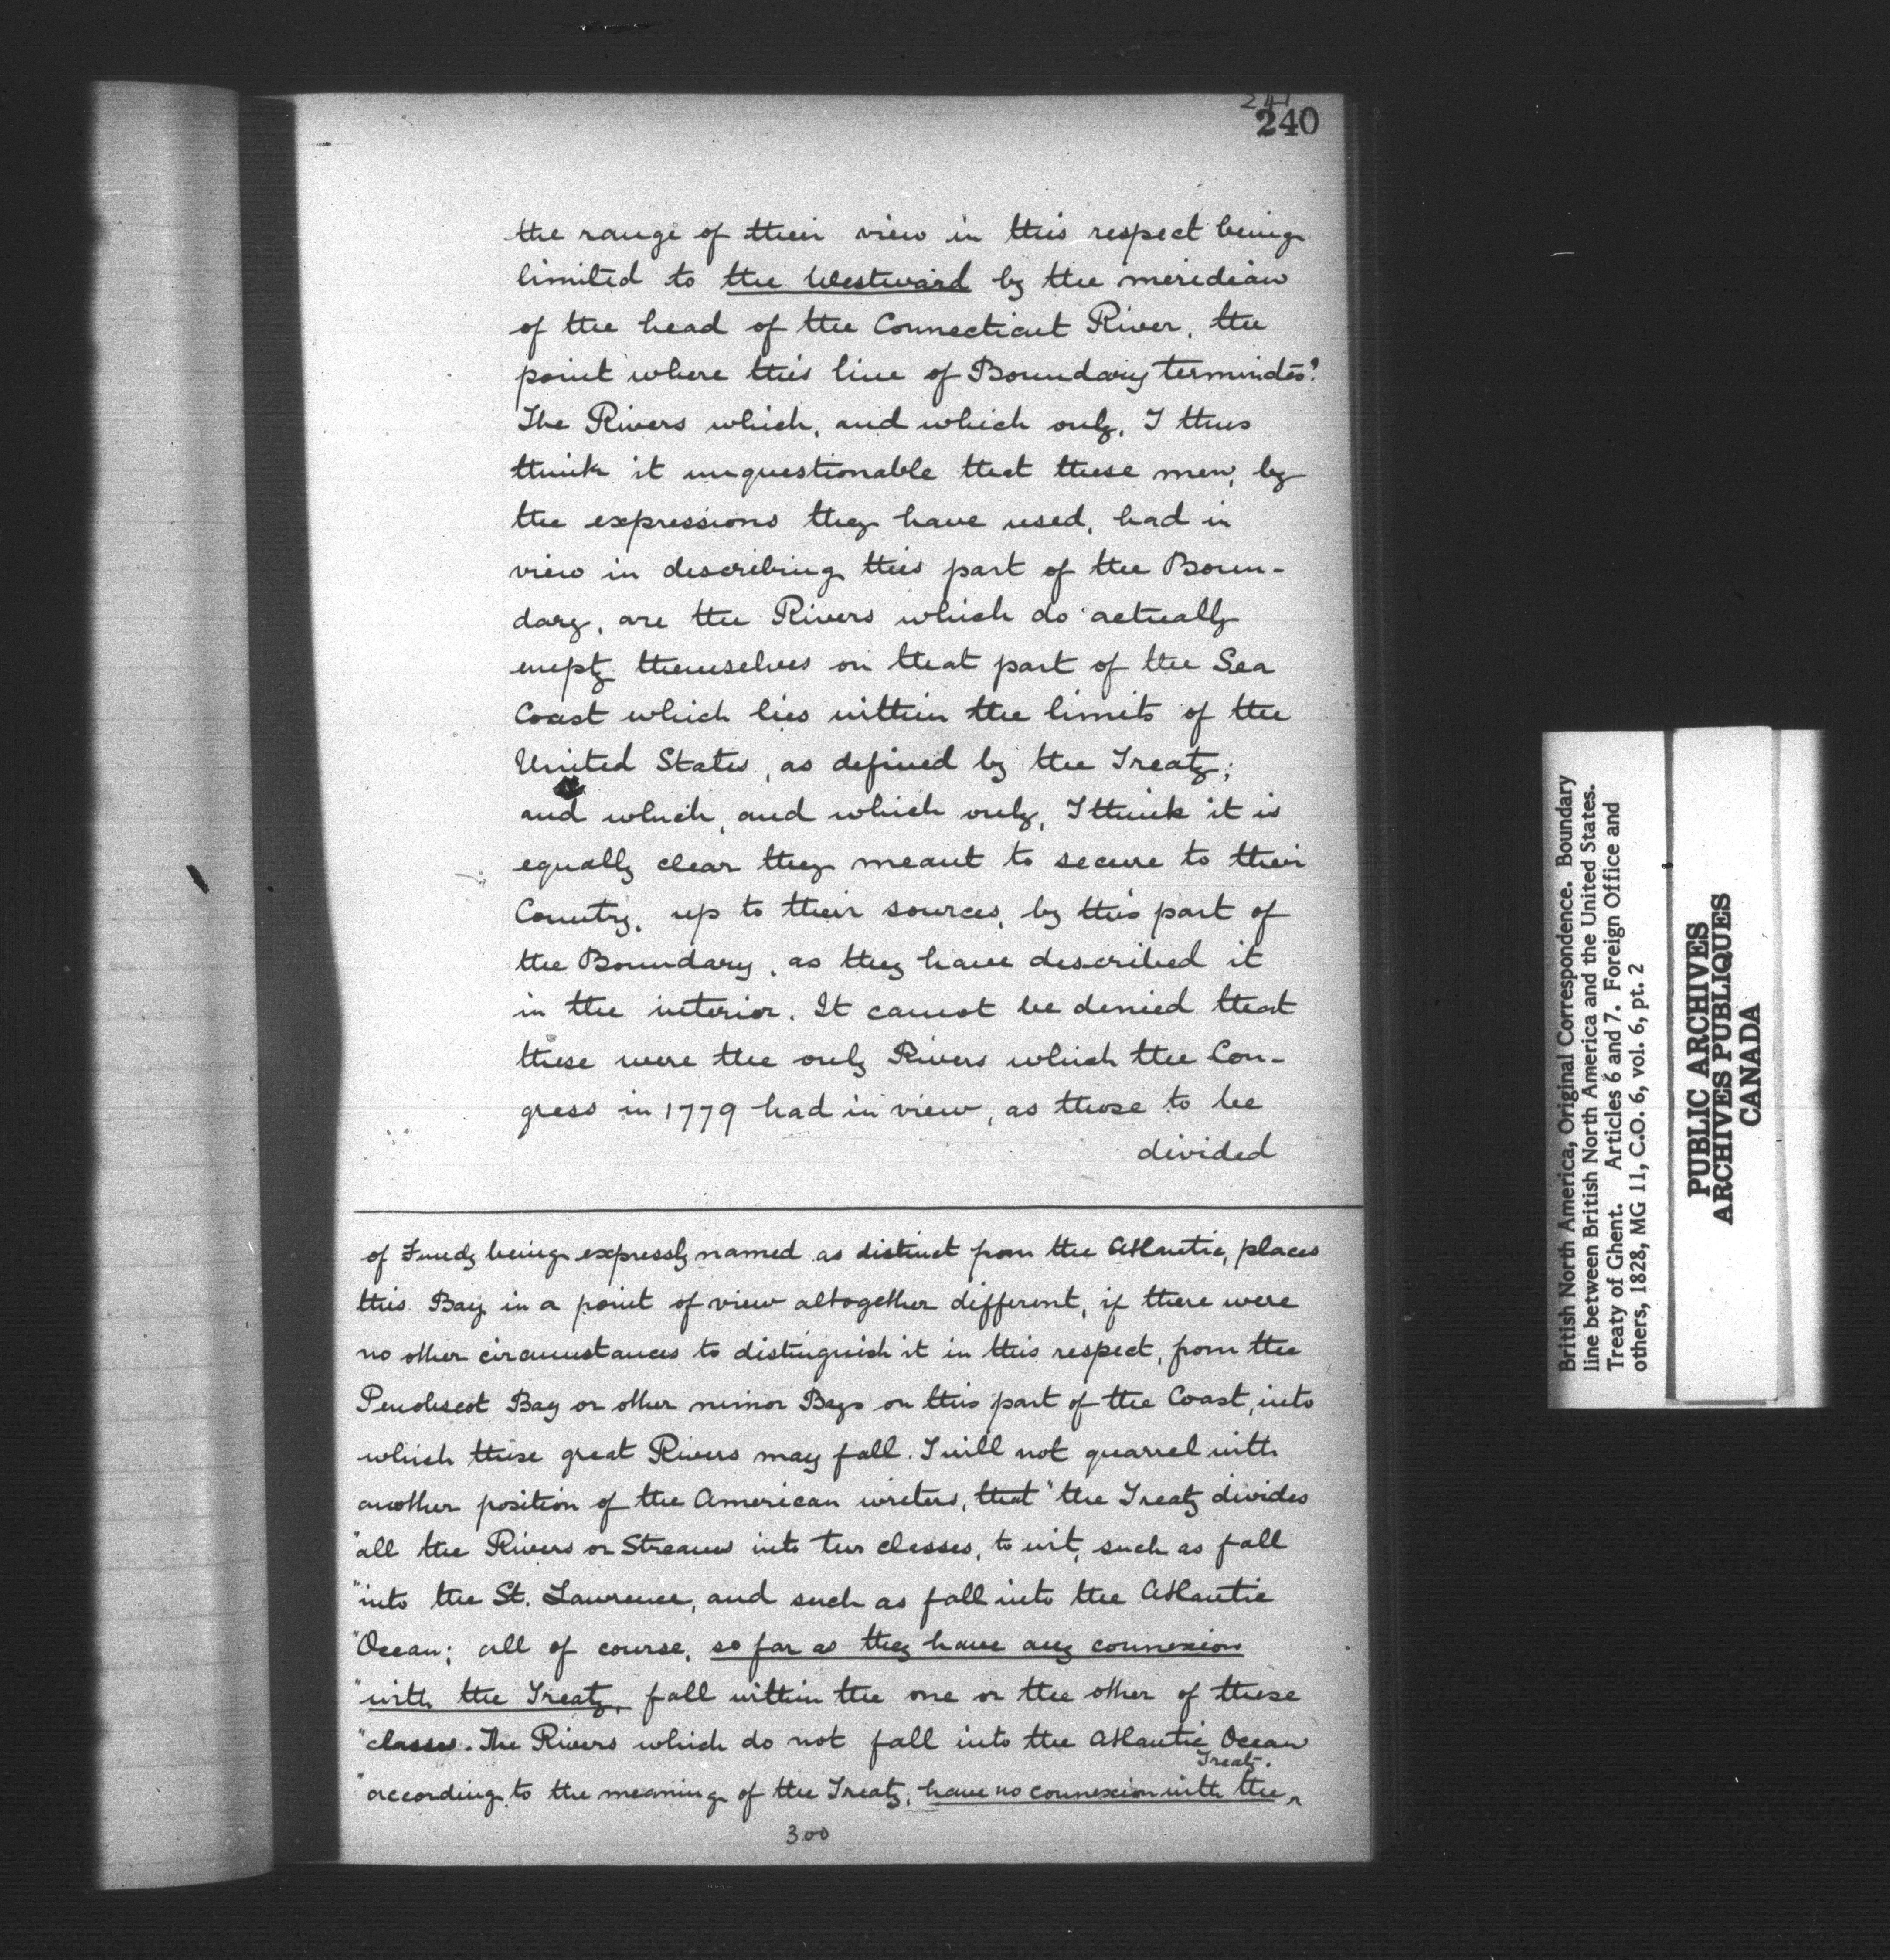 241
240
the range of their view in this respect being
limited to the Westward by the meridian
of the head of the Connecticut River, the
point where this line of Boundary terminates?
The Rivers which, and which only, I thus
think it unquestionable that these men, by
the expressions they have used, had in
view in describing this part of the Boun-
dary, are the Rivers which do actually
empty themselves on that part of the Sea
Coast which lies within the limits of the
United States, as defined by the Treaty;
and which, and which only, I think it is
equally clear they meant to secure to their
Country, up to their sources, by this part of
the Boundary, as they have described it
in the interior. It cannot be denied that
these were the only Rivers which the Con-
gress in 1779 had in view, as those to be
divided
of Fundy being expressly named as distinct from the Atlantic, places
this Bay in a point of view altogether different, if there were
no other circumstances to distinguish it in this respect, from the
Penobscot Bay or other minor Bays on this part of the Coast, into
which these great Rivers may fall. I will not quarrel with
another position of the American writers, that "the Treaty divides
"all the Rivers or Streams into two classes, to wit, such as fall
"into the St. Lawrence, and such as fall into the Atlantic
"Ocean; all of course, so far as they have any connexion
"with the Treaty, fall within the one or the other of these
"classes. The Rivers which do not fall into the Atlantic Ocean
"according to the meaning of the Treaty, have no connexion with the ^ Treaty.
300
British North America, Original Correspondence. Boundary
line between British North America and the United States.
Treaty of Ghent. Articles 6 and 7. Foreign Office and
others, 1828, MG 11, C.O. 6, vol. 6, pt. 2
PUBLIC ARCHIVES
ARCHIVES PUBLIQUES
CANADA